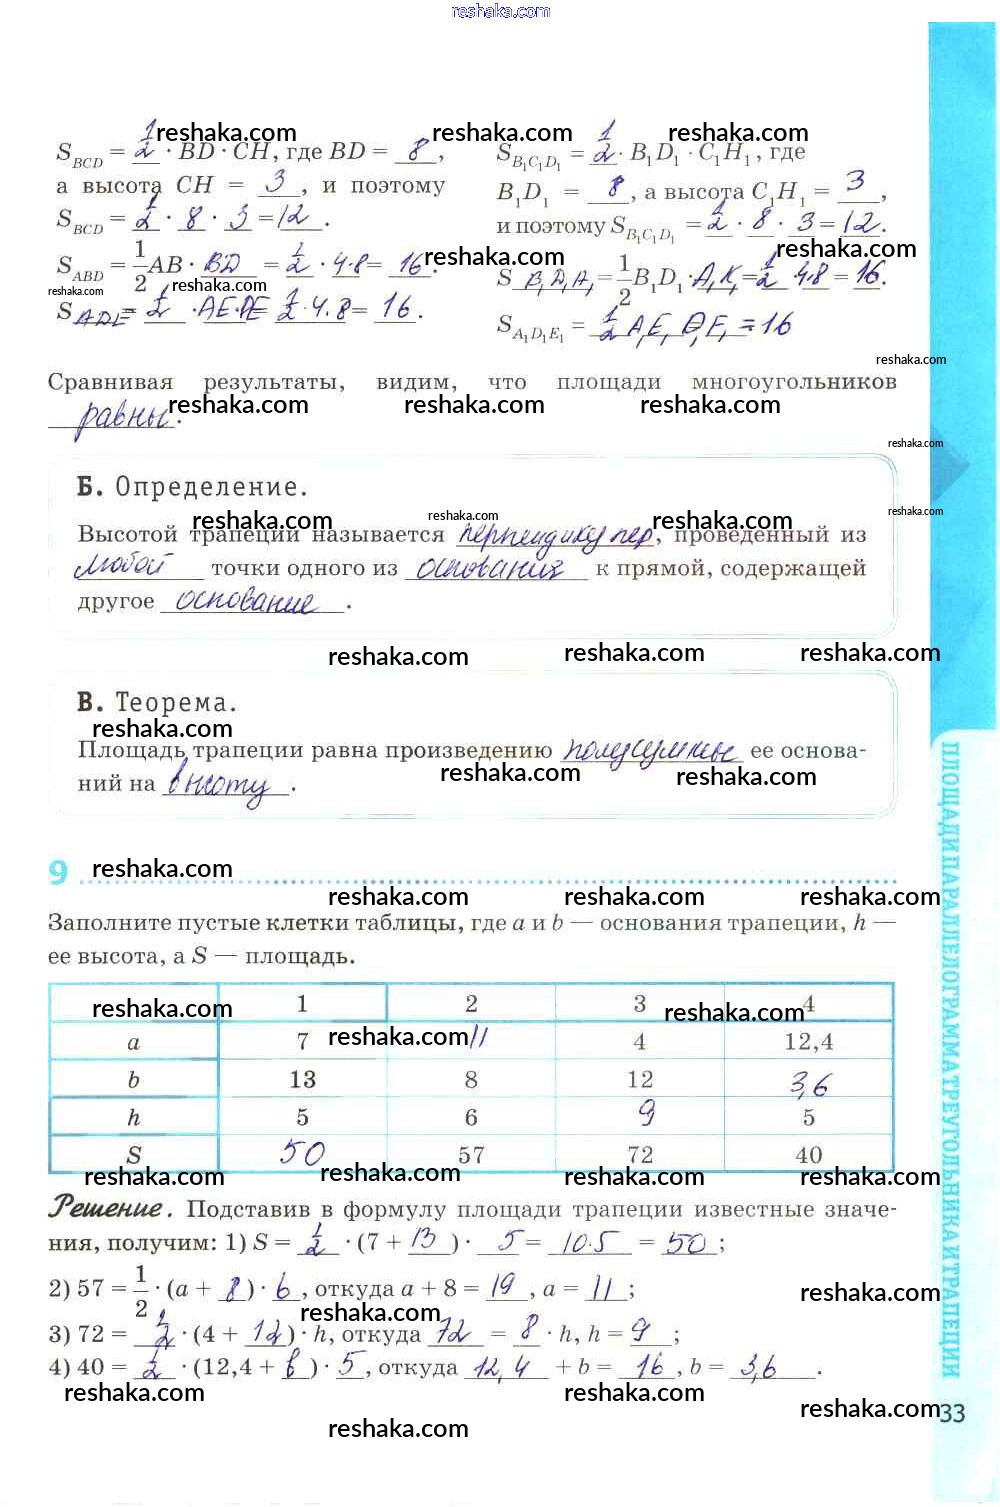 reshaka.com
S_BCD = 1/2 · BD · CH, где BD = 8,
а высота CH = 3, и поэтому
S_BCD = 1/2 · 8 · 3 = 12.
S_ABD = 1/2 AB · BD = 1/2 · 4·8 = 16.
S_ADE = 1/2 · AE·DE = 1/2·4·8 = 16.
S_B₁C₁D₁ = 1/2 · B₁D₁ · C₁H₁, где
B₁D₁ = 8, а высота C₁H₁ = 3,
и поэтому S_B₁C₁D₁ = 1/2 · 8 · 3 = 12.
S_B₁D₁A₁ = 1/2 B₁D₁ · A₁K₁ = 1/2 4·8 = 16.
S_A₁D₁E₁ = 1/2 A₁E₁ D₁E₁ = 16
Сравнивая результаты, видим, что площади многоугольников
равны.
Б. Определение.
Высотой трапеции называется перпендикуляр, проведенный из
любой точки одного из оснований к прямой, содержащей
другое основание.
В. Теорема.
Площадь трапеции равна произведению полусуммы ее основа-
ний на высоту.
9
Заполните пустые клетки таблицы, где a и b — основания трапеции, h —
ее высота, а S — площадь.
1 2 3 4
a 7 11 4 12,4
b 13 8 12 3,6
h 5 6 9 5
S 50 57 72 40
Решение. Подставив в формулу площади трапеции известные значе-
ния, получим: 1) S = 1/2 · (7 + 13) · 5 = 10·5 = 50;
2) 57 = 1/2 · (a + 8) · 6, откуда a + 8 = 19, a = 11;
3) 72 = 1/2 · (4 + 12) · h, откуда 72 = 8 · h, h = 9;
4) 40 = 1/2 · (12,4 + b) · 5, откуда 12,4 + b = 16, b = 3,6.
ПЛОЩАДИ ПАРАЛЛЕЛОГРАММА ТРЕУГОЛЬНИКА И ТРАПЕЦИИ
33